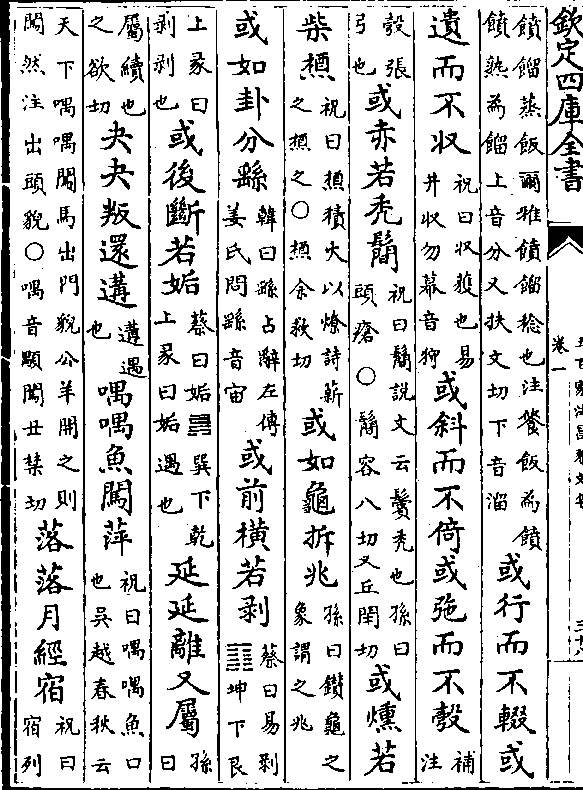 欽定四庫全書
卷一
饙餾蒸飯爾雅饙餾稔也注餐飯為饙饙熟為餾上音分又扶文切下音溜或行而不輟或
遺而不収祝曰収獲也易井収勿幕音狩或斜而不倚或弛而不彀補注
彀張弓也或赤若禿鬜祝曰鬜説文云鬢禿也孫曰頭瘡○鬜容八切又丘閑切或燻若
柴槱祝曰槱積火以燎詩薪之槱之○槱余救切或如龜拆兆孫曰鑽龜之象謂之兆
或如卦分繇韓曰繇占辭左傳姜氏問繇音宙或前橫若剥蔡曰易剥䷖坤下艮
上彖曰剥剥也或後斷若姤蔡曰姤䷫巽下乾上彖曰姤遇也延延離又屬孫曰
屬續也之欲切夬夬叛還遘遘遇也喁喁魚闖萍祝曰喁喁魚口也吳越春秋云
天下喁喁闖馬出門貌公羊開之則闖然注出頭貌○喁音顒闖丑禁切落落月經宿祝曰宿列